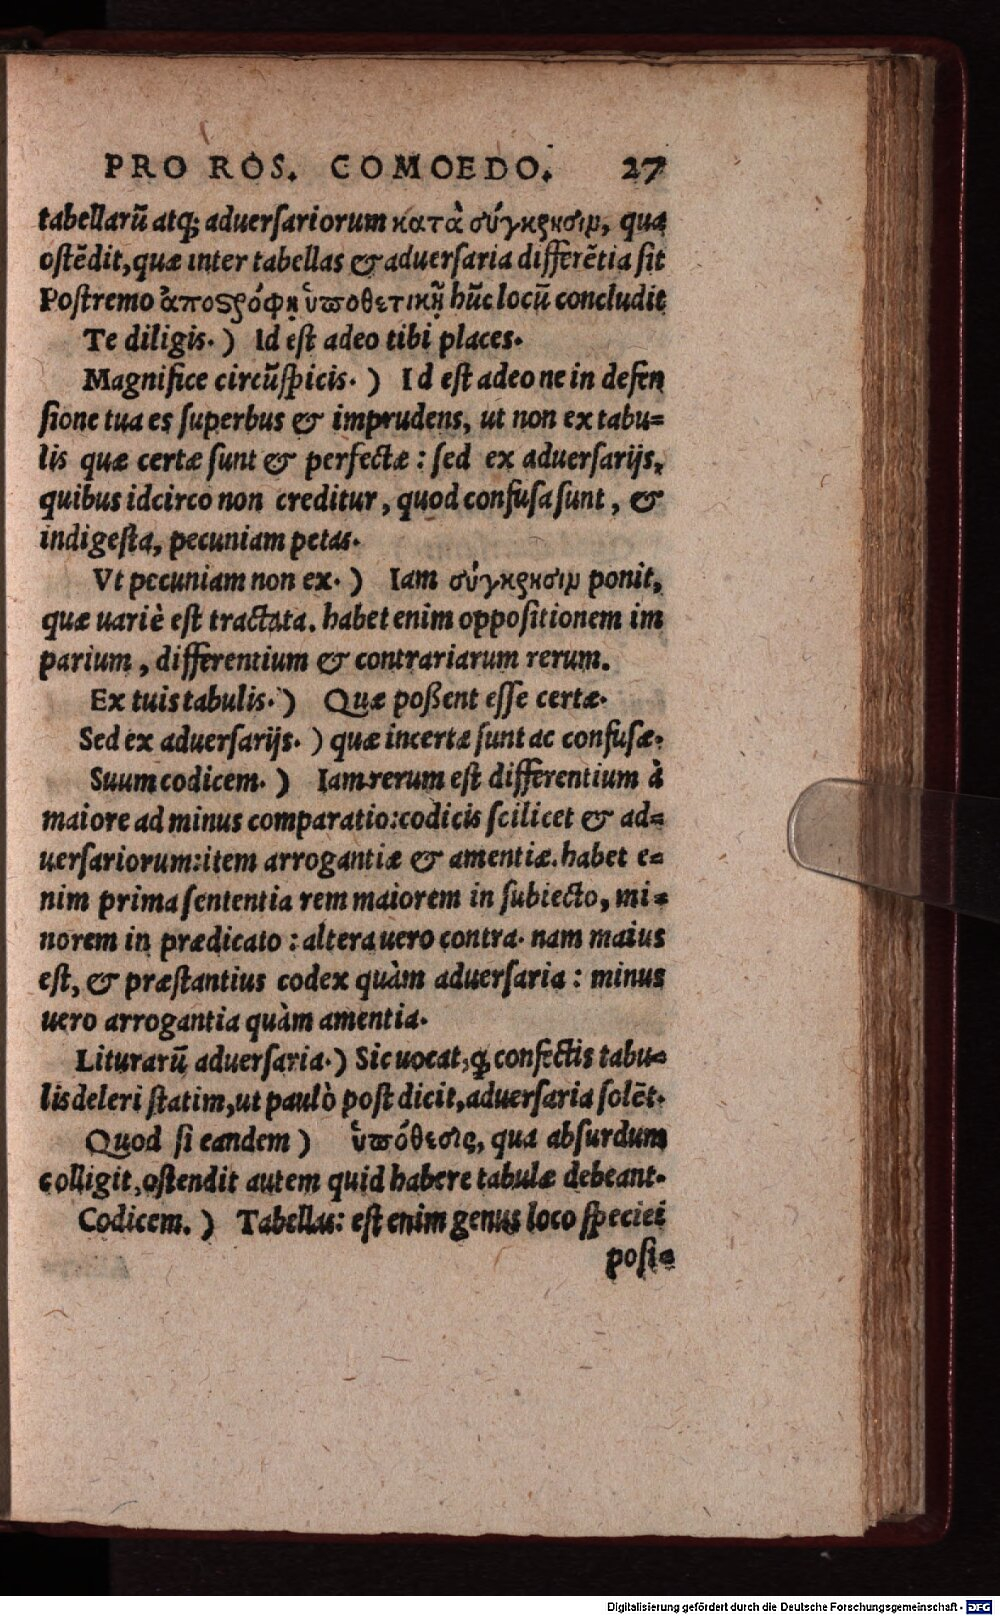 PRO ROS. COMOEDO. 27
tabellarū atq; aduersariorum κατὰ σύγκρισιν, qua
ostēdit, quæ inter tabellas & aduersaria differētia sit
Postremo ἀποστρόφῃ ὑποθετικῇ hūc locū concludit
Te diligis.) Id est adeo tibi places.
Magnifice circūspicis.) Id est adeo ne in defen
sione tua es superbus & imprudens, ut non ex tabu=
lis quæ certæ sunt & perfectæ: sed ex aduersarijs,
quibus idcirco non creditur, quod confusa sunt, &
indigesta, pecuniam petas.
Vt pecuniam non ex.) Iam σύγκρισιν ponit,
quæ uariè est tractata. habet enim oppositionem im
parium, differentium & contrariarum rerum.
Ex tuis tabulis.) Quæ poßent esse certæ.
Sed ex aduersarijs.) quæ incertæ sunt ac confusæ.
Suum codicem.) Iam rerum est differentium à
maiore ad minus comparatio: codicis scilicet & ad=
uersariorum: item arrogantiæ & amentiæ. habet e=
nim prima sententia rem maiorem in subiecto, mi=
norem in prædicato: altera uero contra. nam maius
est, & præstantius codex quàm aduersaria: minus
uero arrogantia quàm amentia.
Liturarū aduersaria.) Sic uocat, ꝙ confectis tabu=
lis deleri statim, ut paulò post dicit, aduersaria solēt.
Quod si eandem) ὑπόθεσις, qua absurdum
colligit, ostendit autem quid habere tabulæ debeant.
Codicem.) Tabellas: est enim genus loco speciei
posi=
Digitalisierung gefördert durch die Deutsche Forschungsgemeinschaft - DFG